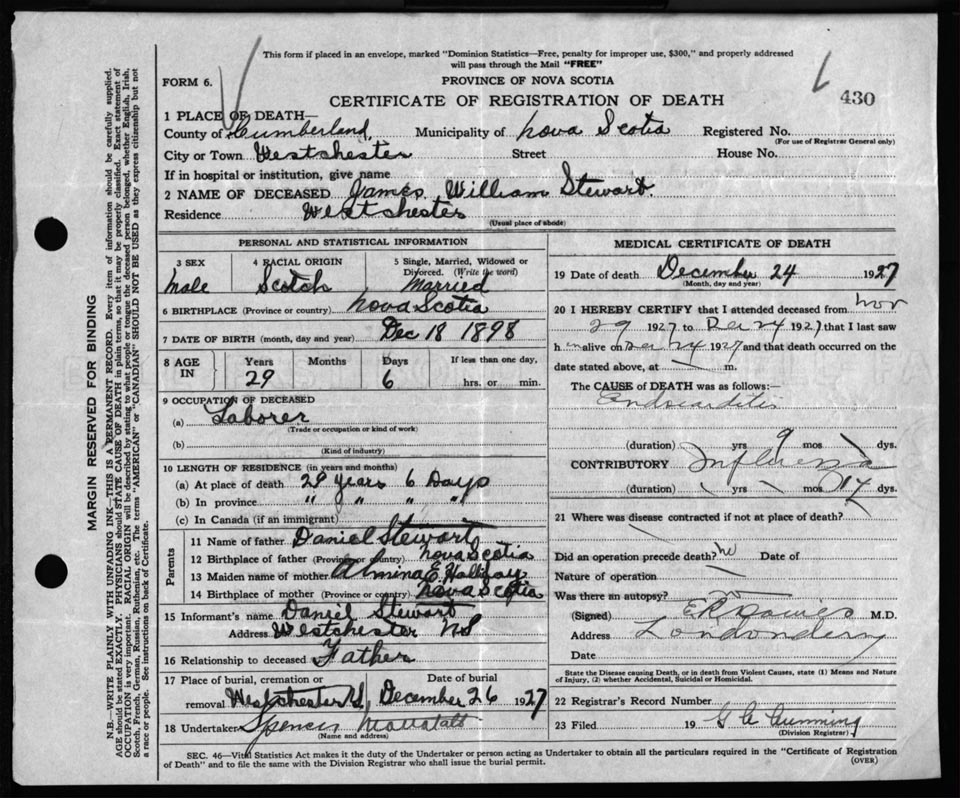 This form if placed in an envelope, marked "Dominion Statistics—Free, penalty for improper use, $300," and properly addressed
will pass through the Mail "FREE"
FORM 6.
PROVINCE OF NOVA SCOTIA
CERTIFICATE OF REGISTRATION OF DEATH
430
1 PLACE OF DEATH—
County of Cumberland, Municipality of Nova Scotia Registered No.
(For use of Registrar General only)
City or Town Westchester Street House No.
If in hospital or institution, give name
2 NAME OF DECEASED James William Stewart.
Residence Westchester
(Usual place of abode)
PERSONAL AND STATISTICAL INFORMATION
3 SEX 4 RACIAL ORIGIN 5 Single, Married, Widowed or
Divorced. (Write the word)
Male Scotch Married
6 BIRTHPLACE (Province or country) Nova Scotia
7 DATE OF BIRTH (month, day and year) Dec 18 1898
8 AGE IN Years Months Days If less than one day,
29 6 hrs. or min.
9 OCCUPATION OF DECEASED
(a) Laborer
(Trade or occupation or kind of work)
(b)
(Kind of industry)
10 LENGTH OF RESIDENCE (in years and months)
(a) At place of death 29 years 6 Days
(b) In province " " " "
(c) In Canada (if an immigrant)
Parents
11 Name of father Daniel Stewart
12 Birthplace of father (Province or Country) Nova Scotia
13 Maiden name of mother Almina E. Halliday
14 Birthplace of mother (Province or country) Nova Scotia
15 Informant's name Daniel Stewart
Address Westchester NS
16 Relationship to deceased Father
17 Place of burial, cremation or Date of burial
removal Westchester December 26 1927
18 Undertaker Spencer
(Name and address)
MEDICAL CERTIFICATE OF DEATH
19 Date of death December 24 1927
(Month, day and year)
20 I HEREBY CERTIFY that I attended deceased from Nov
29 1927 to Dec 24 1927 that I last saw
h im alive on Dec 24 1927 and that death occurred on the
date stated above, at m.
The CAUSE of DEATH was as follows:—
Endocarditis
(duration) yrs 9 mos dys.
CONTRIBUTORY Influenza
(duration) yrs mos 14 dys.
21 Where was disease contracted if not at place of death?
Did an operation precede death? no Date of
Nature of operation
Was there an autopsy?
(Signed) M.D.
Address Londonderry
Date
State the Disease causing Death, or in death from Violent Causes, state (1) Means and Nature
of Injury, (2) whether Accidental, Suicidal or Homicidal.
22 Registrar's Record Number
23 Filed 19 G A Cumming
(Division Registrar)
SEC. 46—Vital Statistics Act makes it the duty of the Undertaker or person acting as Undertaker to obtain all the particulars required in the "Certificate of Registration
of Death" and to file the same with the Division Registrar who shall issue the burial permit.
(OVER)
MARGIN RESERVED FOR BINDING
N.B.—WRITE PLAINLY, WITH UNFADING INK—THIS IS A PERMANENT RECORD. Every item of information should be carefully supplied.
AGE should be stated EXACTLY. PHYSICIANS should STATE CAUSE OF DEATH in plain terms, so that it may be properly classified. Exact statement of
OCCUPATION is very important. RACIAL ORIGIN will be described by stating to what people or tongue the deceased person belonged, whether English, Irish,
Scotch, French, German, Russian, Ruthenian, etc. The terms "AMERICAN" or "CANADIAN" SHOULD NOT BE USED as they express citizenship but not
a race or people. See instructions on back of Certificate.